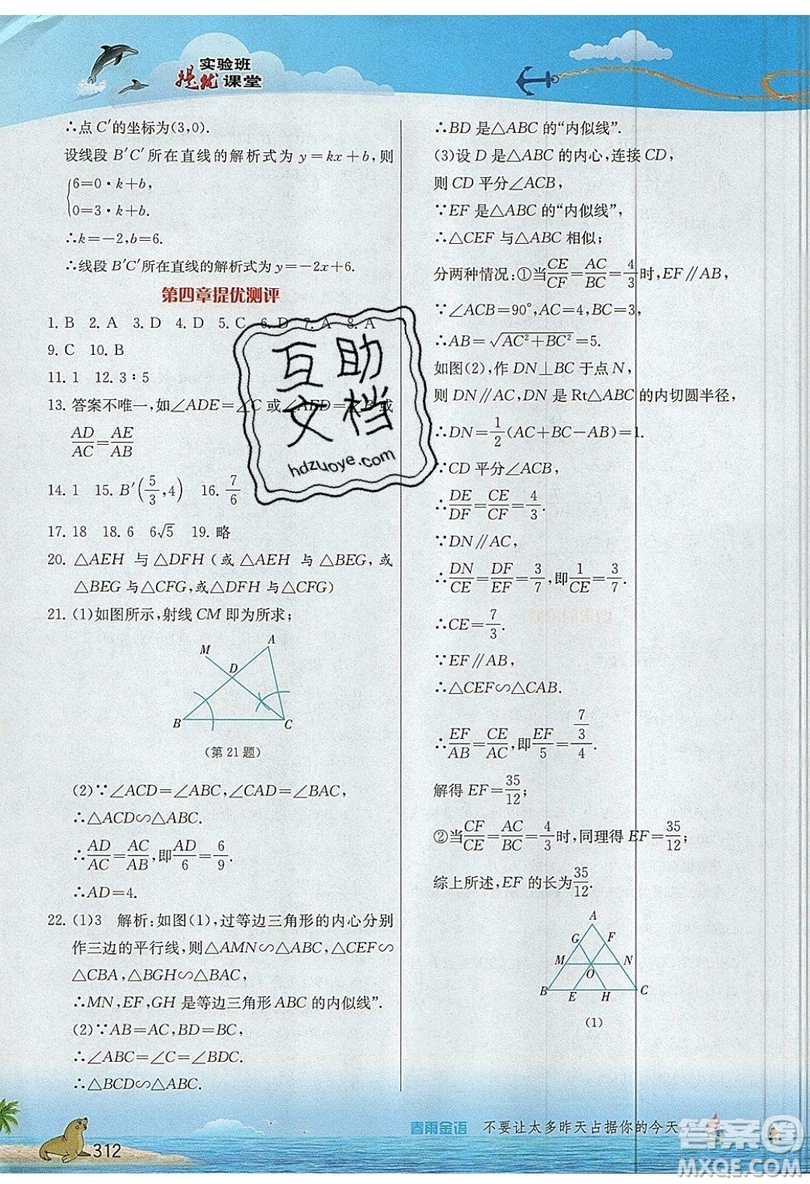 实验班
提优课堂
∴点 C′的坐标为(3,0).
设线段 B′C′所在直线的解析式为 y=kx+b,则
{6=0·k+b,
0=3·k+b.
∴k=-2,b=6.
∴线段 B′C′所在直线的解析式为 y=-2x+6.
第四章提优测评
1.B 2.A 3.D 4.D 5.C 6.D 7.A 8.A
9.C 10.B
11.1 12.3∶5
13.答案不唯一,如∠ADE=∠C 或∠AED=∠B 或
AD/AC=AE/AB
14.1 15.B′(5/3,4) 16.7/6
17.18 18.6 6√5 19.略
20.△AEH 与△DFH(或△AEH 与△BEG,或
△BEG 与△CFG,或△CFG 与△DFH)
21.(1)如图所示,射线 CM 即为所求;
A
M
D
B
C
(第 21 题)
(2)∵∠ACD=∠ABC,∠CAD=∠BAC,
∴△ACD∽△ABC.
∴AD/AC=AC/AB,即AD/6=6/9.
∴AD=4.
22.(1)3 解析:如图(1),过等边三角形的内心分别
作三边的平行线,则△AMN∽△ABC,△CEF∽
△CBA,△BGH∽△BAC,
∴MN,EF,GH 是等边三角形 ABC 的内似线”.
(2)∵AB=AC,BD=BC,
∴∠ABC=∠C=∠BDC,
∴△BDC∽△ABC.
∴BD 是△ABC 的“内似线”.
(3)设 D 是△ABC 的内心,连接 CD,
则 CD 平分∠ACB,
∵EF 是△ABC 的“内似线”,
∴△CEF 与△ABC 相似;
分两种情况:①当CE/CF=AC/BC=4/3时,EF∥AB,
∵∠ACB=90°,AC=4,BC=3,
∴AB=√AC²+BC²=5.
如图(2),作 DN⊥BC 于点 N,
则 DN∥AC,DN 是 Rt△ABC 的内切圆半径,
∴DN=1/2(AC+BC-AB)=1.
∵CD 平分∠ACB,
∴DE/DF=CE/CF=4/3.
∵DN∥AC,
∴DN/CE=DF/EF=3/7,即1/CE=3/7,
∴CE=7/3.
∵EF∥AB,
∴△CEF∽△CAB.
∴EF/AB=CE/AC,即EF/5=7/3/4.
解得 EF=35/12;
②当CF/CE=AC/BC=4/3时,同理得 EF=35/12;
综上所述,EF 的长为35/12.
A
G F
M O N
B E H C
(1)
互助
文档
hdzuoye.com
312
春雨金语 不要让太多昨天占据你的今天
答案圈
MXQE.COM